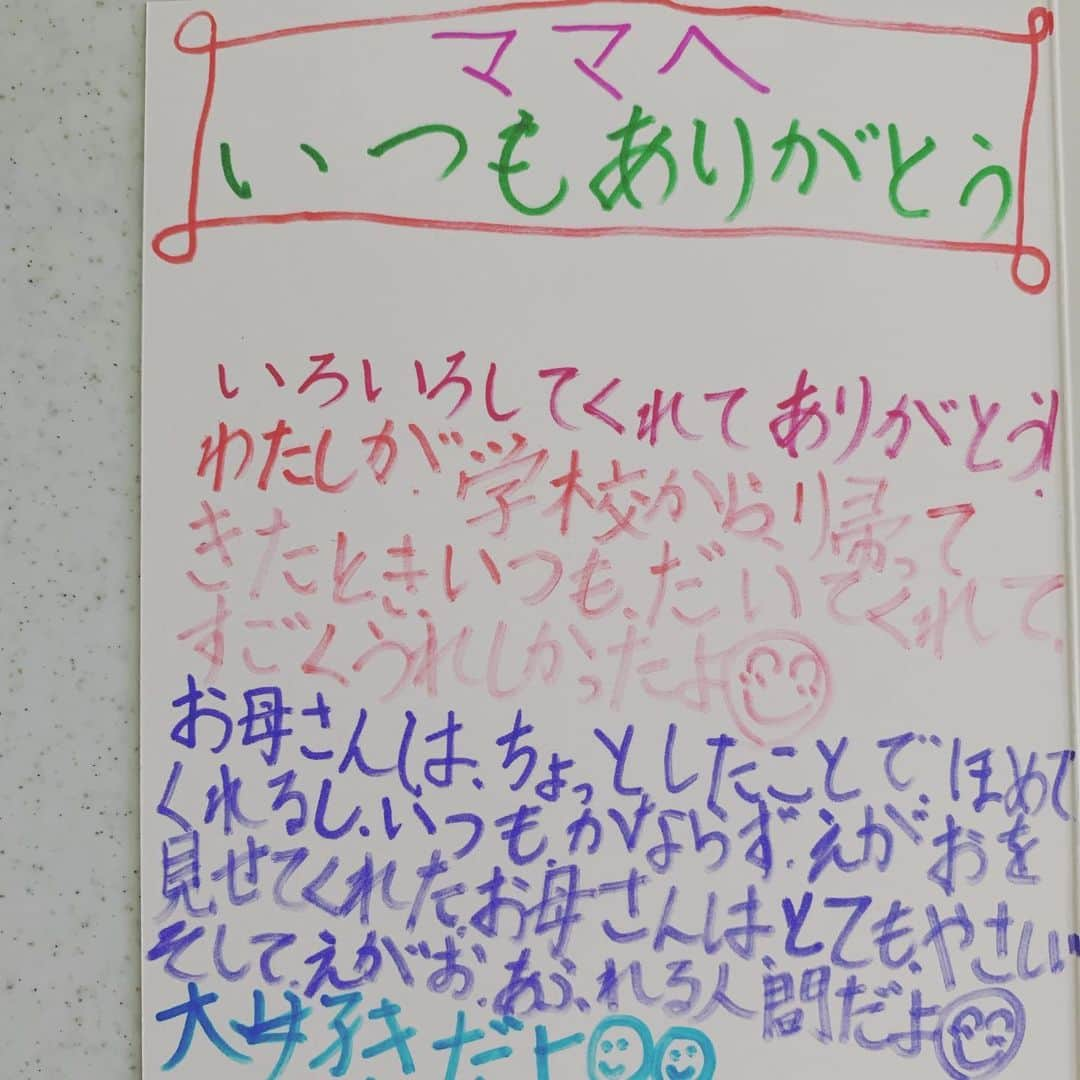 ママへ
いつもありがとう
いろいろしてくれてありがとう!
わたしが、学校から、帰って
きたとき、いつも、だいてくれて、
すごくうれしかったよ
お母さんは、ちょっとしたことで、ほめて
くれるし、いつも、かならず、えがおを
見せてくれた、お母さんは、とても、やさしい
そして、えがお、あふれる人間だよ
大好きだよ